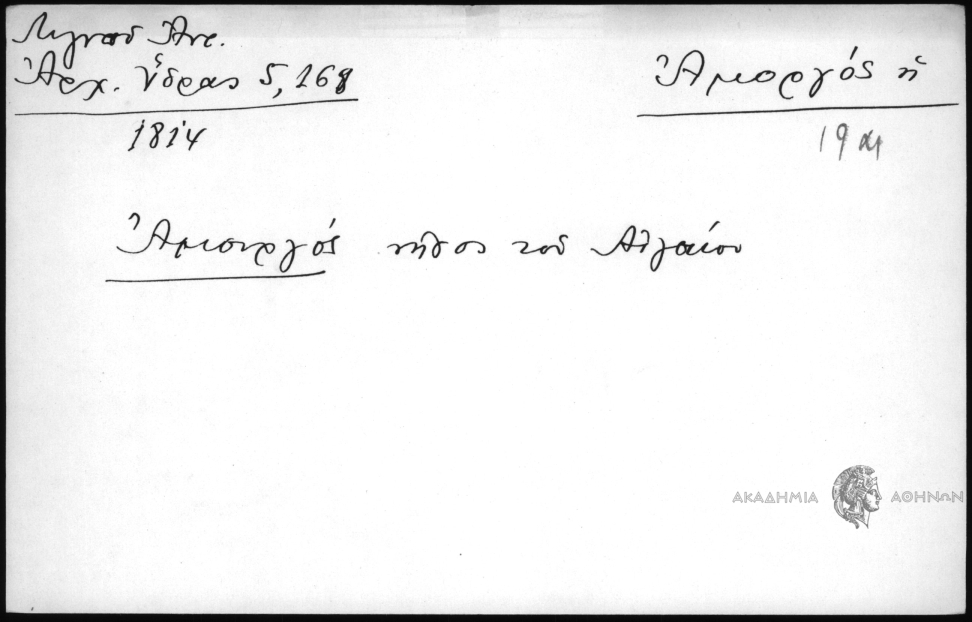 Λιγνοῦ Ἀντ.
Ἀρχ. Ὕδρας 5, 168
1814
Ἀμοργός ἡ
19 αι
Ἀμουργός νῆσος τοῦ Αἰγαίου
ΑΚΑΔΗΜΙΑ ΑΘΗΝΩΝ